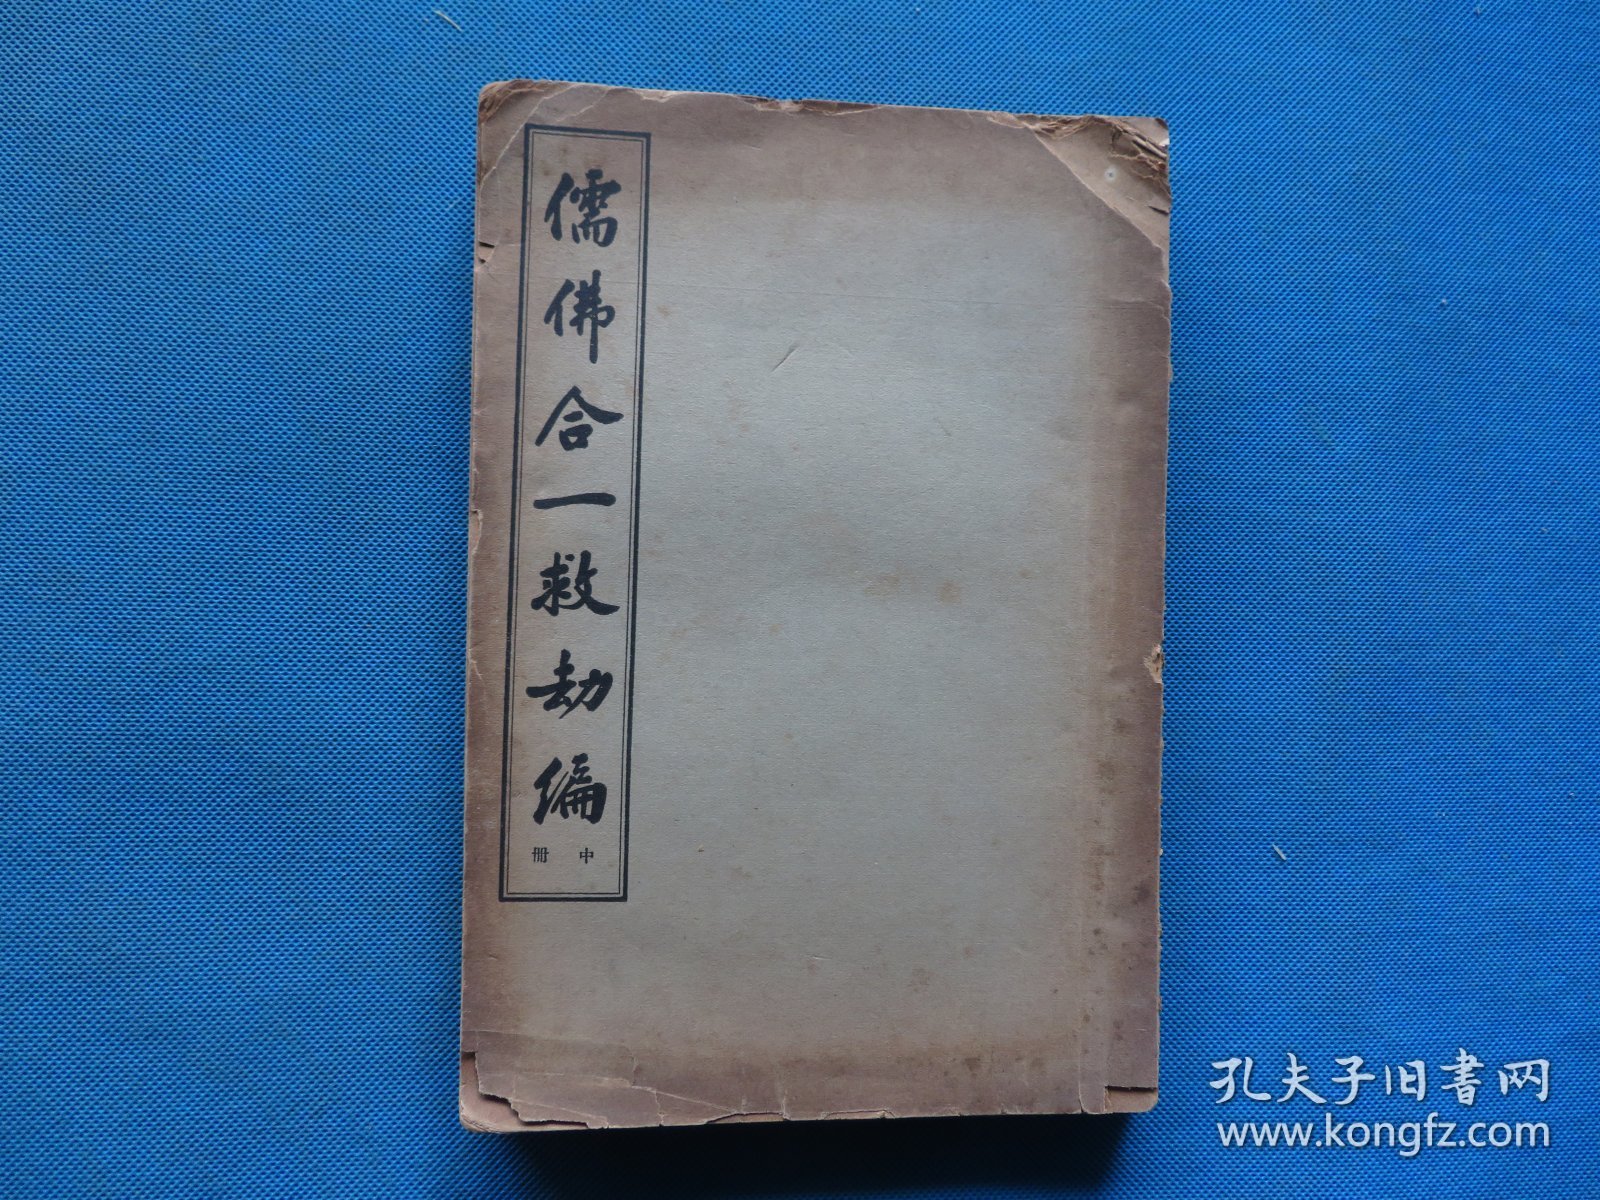 儒佛合一救劫編
中册
孔夫子旧書网
www.kongfz.com